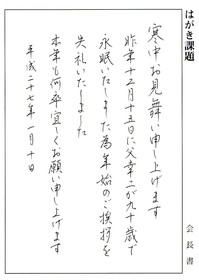 はがき課題
寒中お見舞い申し上げます
昨年十二月十五日に父幸二が九十歳で
永眠いたしました為年始のご挨拶を
失礼いたしました
本年も何卒宜しくお願い申し上げます
平成二十七年一月十日
会長書